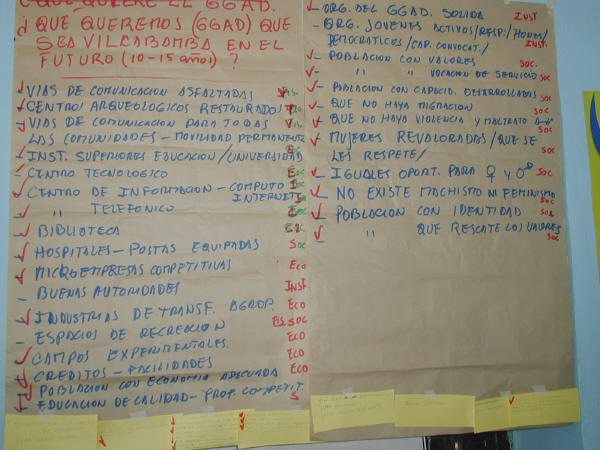 ¿QUE QUIERE EL GGAD.
¿ QUE QUEREMOS (GGAD) QUE
SEA VILCABAMBA EN EL
FUTURO (10-15 años) ?
VIAS DE COMUNICACION ASFALTADAS Fis.
CENTRO ARQUEOLOGICOS RESTAURADOS
VIAS DE COMUNICACION PARA TODAS
LAS COMUNIDADES - MOVILIDAD PERMANENTE
INST. SUPERIORES EDUCACION/UNIVERSIDAD
CENTRO TECNOLOGICO
CENTRO DE INFORMACION - COMPUTO
INTERNET
" TELEFONICO
BIBLIOTECA
HOSPITALES - POSTAS EQUIPADAS Soc
MICROEMPRESAS COMPETITIVAS Eco
BUENAS AUTORIDADES INST
INDUSTRIAS DE TRANSF. AGROP. ECO
ESPACIOS DE RECREACION FIS SOC
CAMPOS EXPERIMENTALES ECO
CREDITOS - FACILIDADES ECO
POBLACION CON ECONOMIA ADECUADA ECO
EDUCACION DE CALIDAD - PROF. COMPETIT. S
ORG. DEL GGAD. SOLIDA INST
ORG. JOVENES ACTIVOS/RESP./HONES/
DEMOCRATICOS/CAP. CONVOCAT./ INST.
POBLACION CON VALORES SOC.
" " VOCACION DE SERVICIO SOC
POBLACION CON CAPACID. DESARROLLADAS SOC
QUE NO HAYA MIGRACION SOC
QUE NO HAYA VIOLENCIA Y MALTRATO
MUJERES REVALORADAS/QUE SE SOC
LES RESPETE/
IGUALES OPORT. PARA ♀ y ♂ SOC
NO EXISTE MACHISMO NI FEMINISMO SOC
POBLACION CON IDENTIDAD SOC
" QUE RESCATE LOS VALORES
SOC